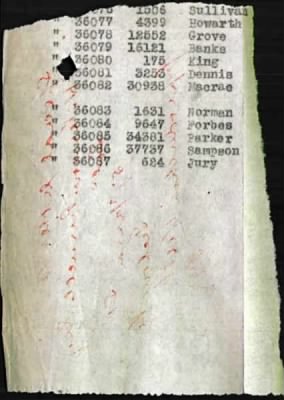 1506 Sullivan
" 36077 4399 Howarth
" 36078 12552 Grove
" 36079 16121 Banks
" 36080 175 King
" 36081 3253 Dennis
" 36082 30938 Macrae
" 36083 1631 Norman
" 36084 9647 Forbes
" 36085 34381 Parker
" 36086 37737 Sampson
" 36087 624 Jury